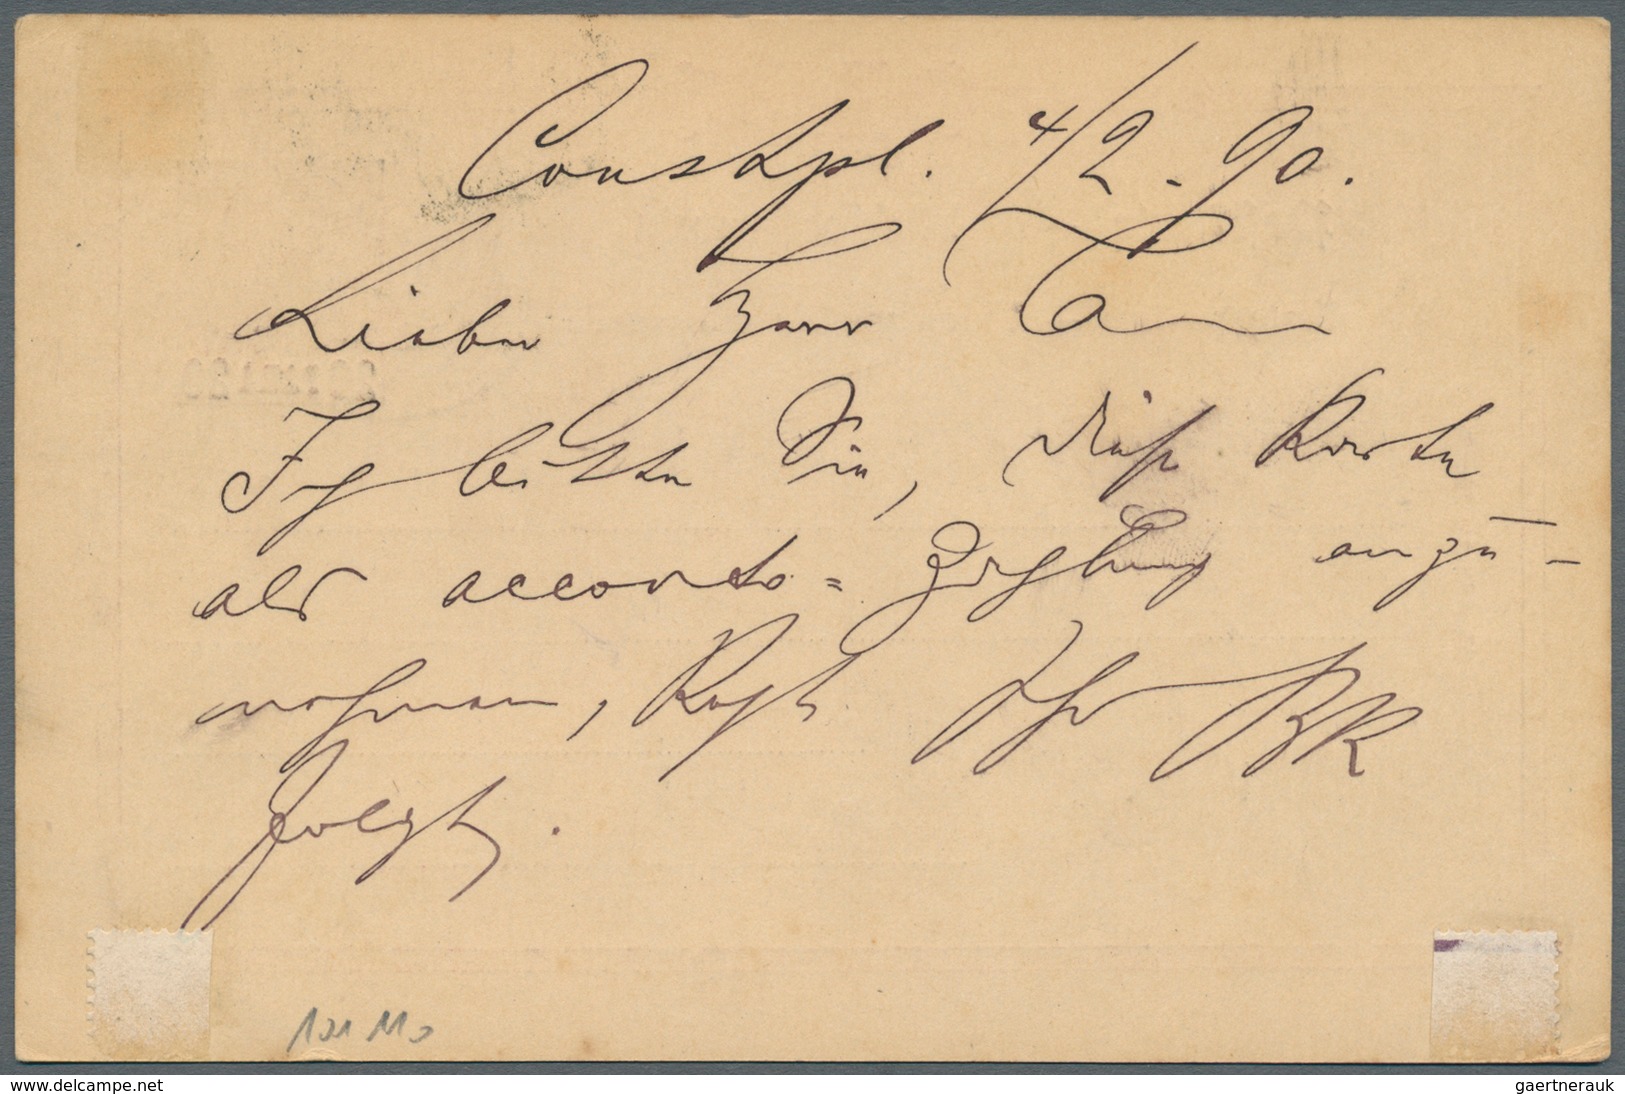 Constpl. 4/2. 90.
Lieber Herr
Ich bitte Sie, diese Karte
als acconto = Zahlung anzu-
nehmen, Rest Ihr BR
folgt.
101 M
www.delcampe.net
gaertnerauk